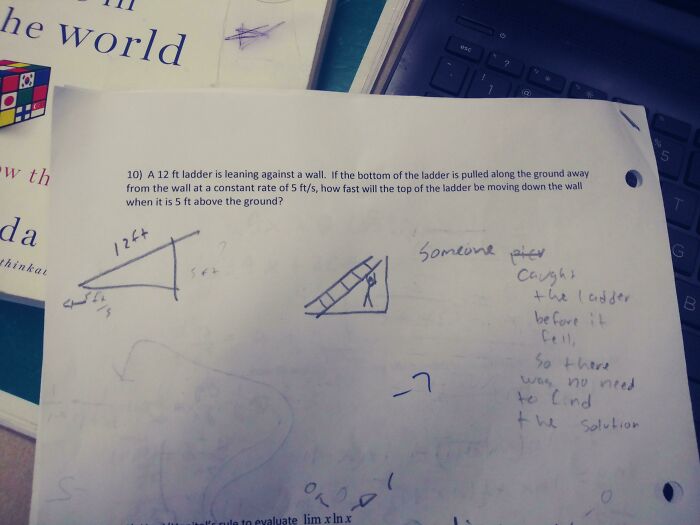 he world
ow th
da
thinkai
esc
10) A 12 ft ladder is leaning against a wall. If the bottom of the ladder is pulled along the ground away
from the wall at a constant rate of 5 ft/s, how fast will the top of the ladder be moving down the wall
when it is 5 ft above the ground?
12ft
?
5 ft
5 ft
/s
Someone
caught
the ladder
before it
fell,
So there
was no need
to find
the solution
-7
rule to evaluate lim x ln x